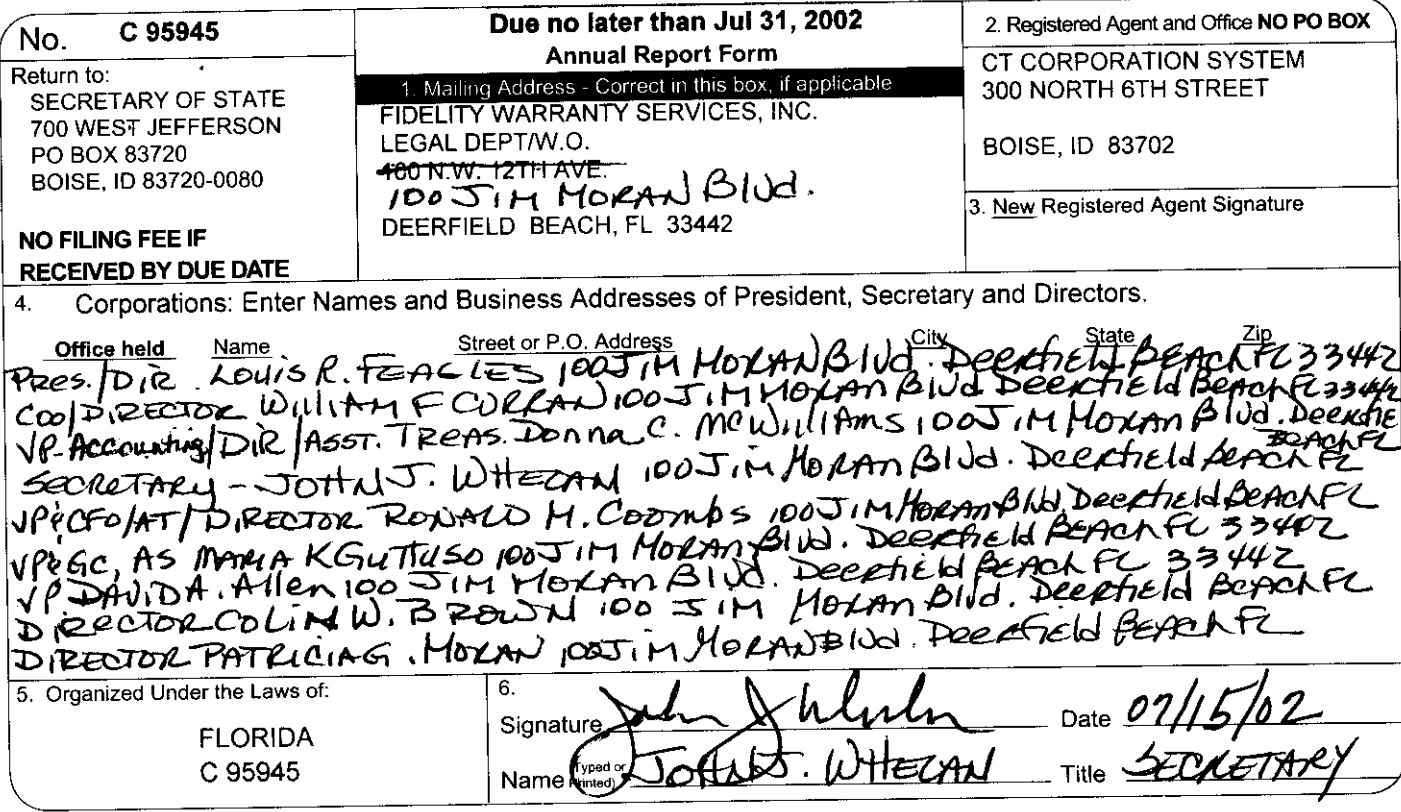 No. C 95945
Return to:
SECRETARY OF STATE
700 WEST JEFFERSON
PO BOX 83720
BOISE, ID 83720-0080
NO FILING FEE IF
RECEIVED BY DUE DATE
Due no later than Jul 31, 2002
Annual Report Form
1. Mailing Address - Correct in this box, if applicable
FIDELITY WARRANTY SERVICES, INC.
LEGAL DEPT/W.O.
N.W. 12TH AVE.
100 JIM MORAN Blvd.
DEERFIELD BEACH, FL 33442
2. Registered Agent and Office NO PO BOX
CT CORPORATION SYSTEM
300 NORTH 6TH STREET
BOISE, ID 83702
3. New Registered Agent Signature
4. Corporations: Enter Names and Business Addresses of President, Secretary and Directors.
Office held Name Street or P.O. Address City State Zip
Pres./DIR. LOUIS R. FEAGLES 100 JIM MORAN Blvd. Deerfield BEACH FL 33442
COO/DIRECTOR WILLIAM F CURRAN 100 JIM MORAN Blvd Deerfield BEACH FL 33442
VP-Accounting/DIR/ASST. TREAS. Donna C. McWilliams 100 JIM MORAN Blvd. Deerfie
BEACH FL
SECRETARY - JOHN J. WHELAN 100 JIM MORAN Blvd. Deerfield BEACH FL
VP&CFO/AT/DIRECTOR RONALD M. COOMBS 100 JIM MORAN Blvd. Deerfield BEACH FL
VP&GC, AS MARIA K GUTTUSO 100 JIM MORAN Blvd. Deerfield BEACH FL 33442
VP DAVID A. Allen 100 JIM MORAN Blvd. Deerfield BEACH FL 33442
DIRECTOR COLIN W. BROWN 100 JIM MORAN Blvd. Deerfield BEACH FL
DIRECTOR PATRICIA G. MORAN 100 JIM MORAN Blvd. Deerfield BEACH FL
5. Organized Under the Laws of:
FLORIDA
C 95945
6.
Signature John J Whelan Date 07/15/02
Name (Typed or Printed) JOHN J. WHELAN Title SECRETARY